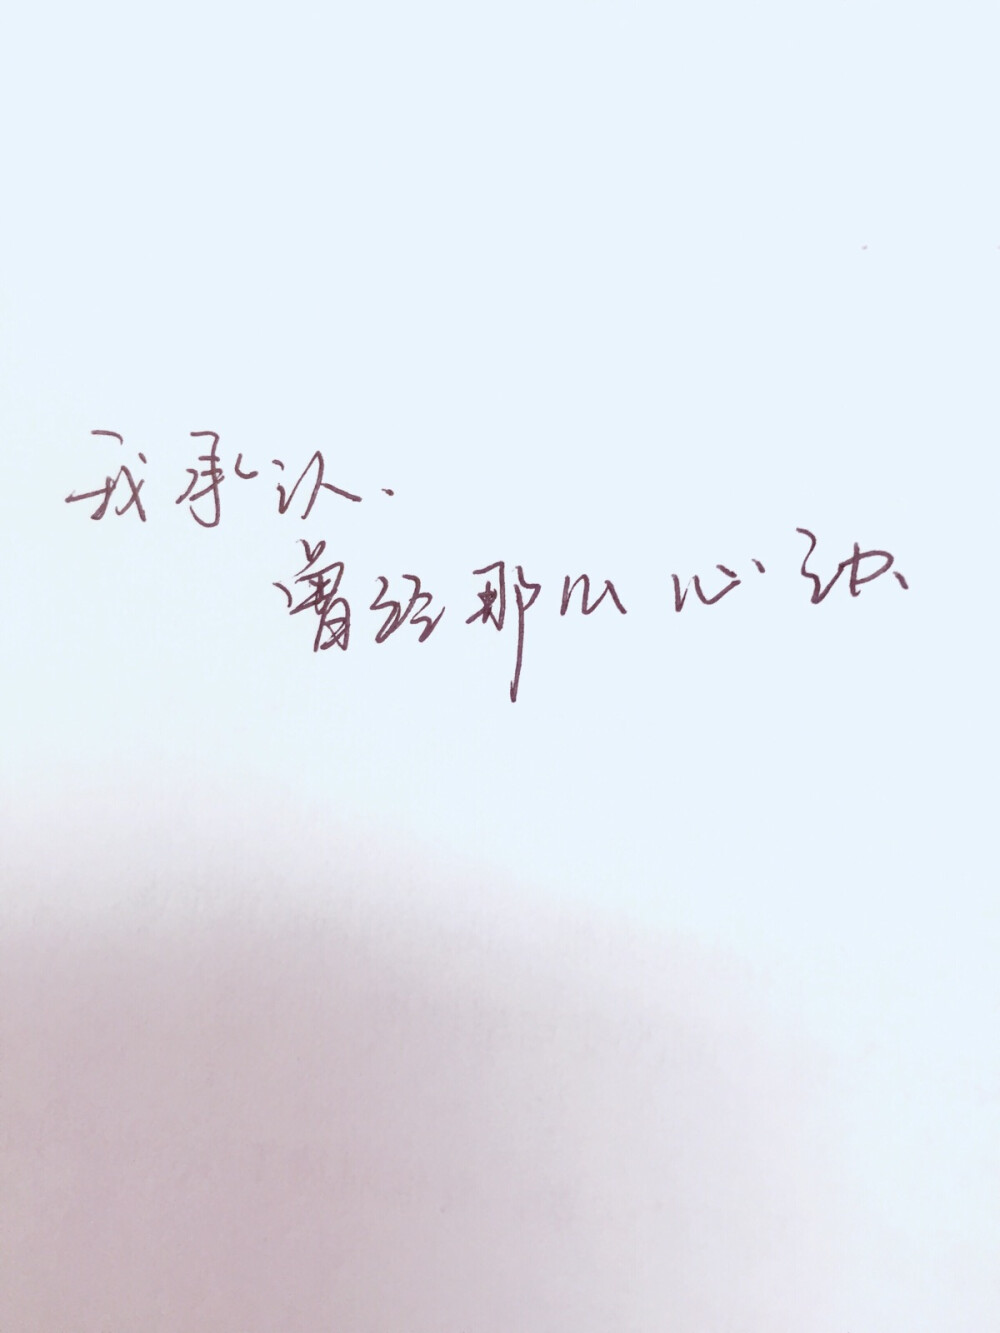 我承认.
曾经那么心动.